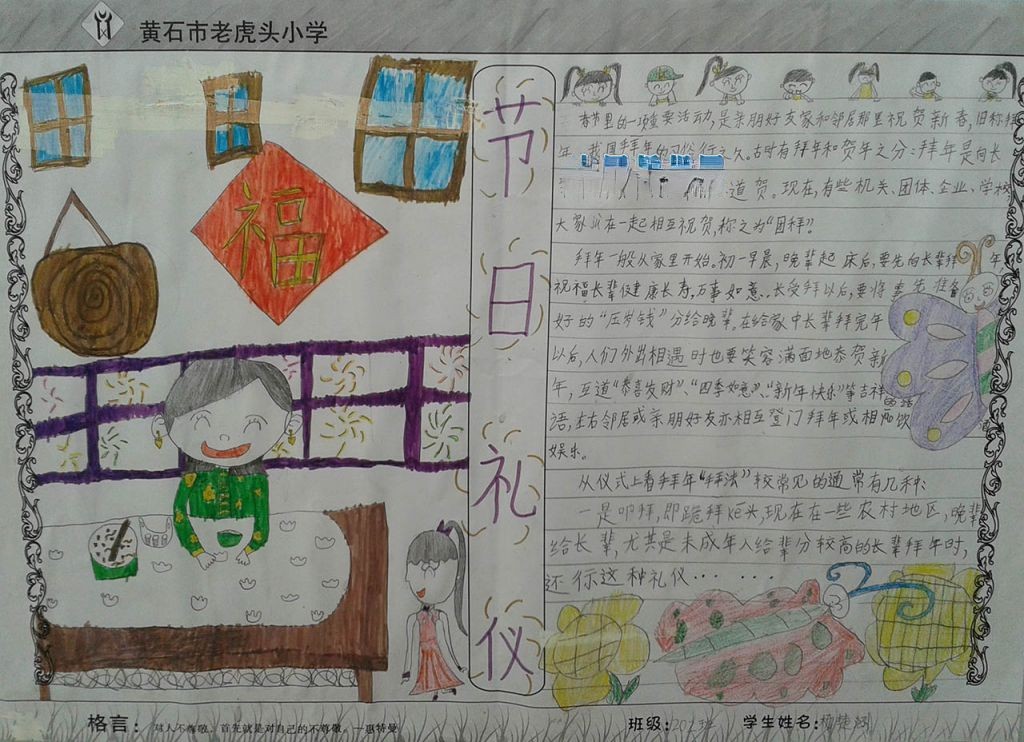 黄石市老虎头小学
福
节日礼仪
春节里的一项重要活动,是亲朋好友家和邻居那里祝贺新春,旧称拜
年。我国拜年的习俗行之久。古时有拜年和贺年之分:拜年是向长
道贺。现在,有些机关、团体、企业、学校
大家在一起相互祝贺,称之为“团拜”
拜年一般从家里开始。初一早晨,晚辈起床后,要先向长辈拜年
祝福长辈健康长寿,万事如意。长受拜以后,要将事先准备
好的“压岁钱”分给晚辈。在给家中长辈拜完年
以后,人们外出相遇时也要笑容满面地恭贺新
年,互道“恭喜发财”、“四季如意”、“新年快乐”等吉祥
语,左右邻居或亲朋好友亦相互登门拜年或相
娱乐。
从仪式上看拜年“拜法”较常见的通常有几种:
一是叩拜,即跪拜ke头,现在在一些农村地区,晚辈
给长辈,尤其是未成年人给辈分较高的长辈拜年时,
还行这种礼仪……
格言: 对人不尊敬,首先就是对自己的不尊敬。—惠特曼
班级:202班 学生姓名: